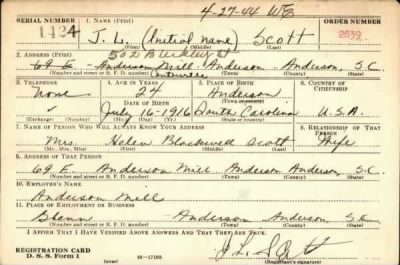 4-27-44 WE
SERIAL NUMBER 1. NAME (Print) ORDER NUMBER
1424 J. L. (Initial name) Scott 2839
(First) (Middle) (Last)
502 Bleckley St
2. ADDRESS (Print)
69 E Anderson Mill Anderson Anderson, S.C.
(Number and street or R. F. D. number) (Town) (County) (State)
3. TELEPHONE 4. AGE IN YEARS 5. PLACE OF BIRTH 6. COUNTRY OF CITIZENSHIP
None 24 Anderson
(Town or county)
DATE OF BIRTH
July 16 1916 South Carolina U.S.A.
(Exchange) (Number) (Mo.) (Day) (Yr.) (State or country)
7. NAME OF PERSON WHO WILL ALWAYS KNOW YOUR ADDRESS 8. RELATIONSHIP OF THAT PERSON
Mrs. Helen Blackwell Scott Wife
(Mr., Mrs., Miss) (First) (Middle) (Last)
9. ADDRESS OF THAT PERSON
69 E Anderson Mill Anderson Anderson S.C.
(Number and street or R. F. D. number) (Town) (County) (State)
10. EMPLOYER'S NAME
Anderson Mill
11. PLACE OF EMPLOYMENT OR BUSINESS
Glenn Anderson Anderson S.C.
(Number and street or R. F. D. number) (Town) (County) (State)
I AFFIRM THAT I HAVE VERIFIED ABOVE ANSWERS AND THAT THEY ARE TRUE.
REGISTRATION CARD J. L. Scott
D. S. S. Form 1 16-17105 (Registrant's signature)